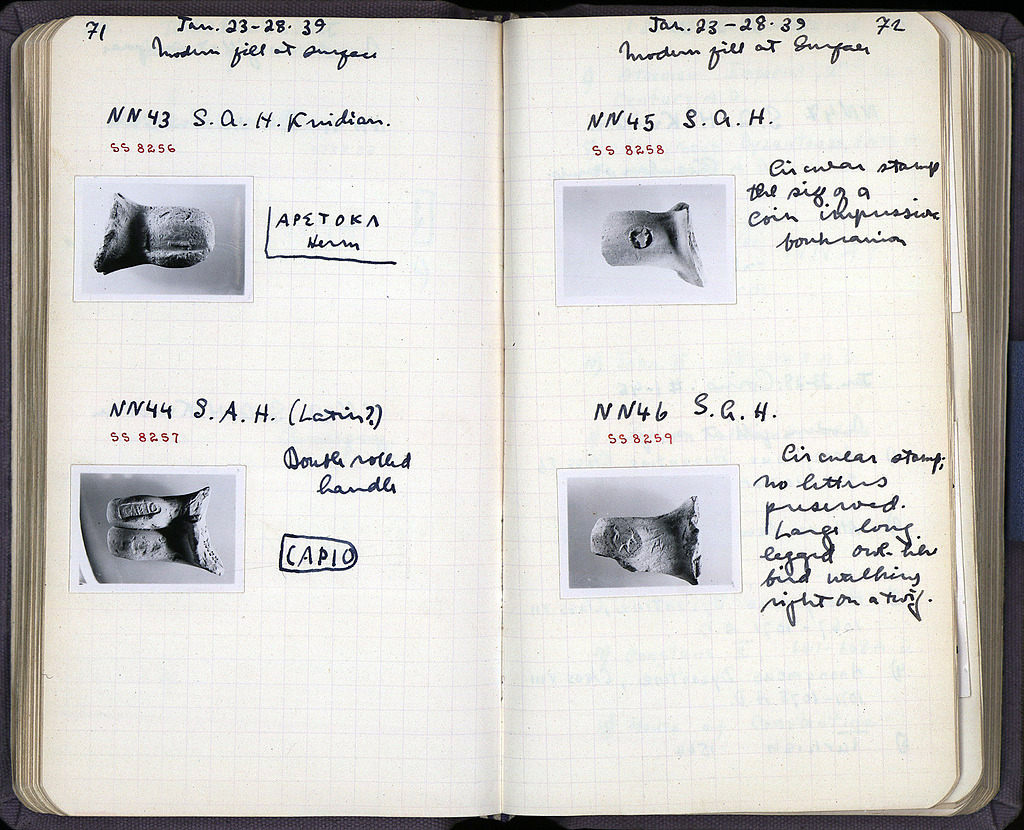 71
Jan. 23-28. 39
Modern fill at surface
NN43 S.A.H. Knidian.
SS 8256
ΑΡΕΤΟΚΛ
Herm
NN44 S.A.H. (Latin?)
SS 8257
Double rolled
handle
CAPIO
CAPIO
Jan. 23-28. 39
72
Modern fill at Surface
NN45 S.A.H.
SS 8258
Circular stamp
the size of a
coin impression
boukranion
NN46 S.A.H.
SS 8259
Circular stamp;
no letters
preserved.
Large long
legged
bird walking
right on a twig.